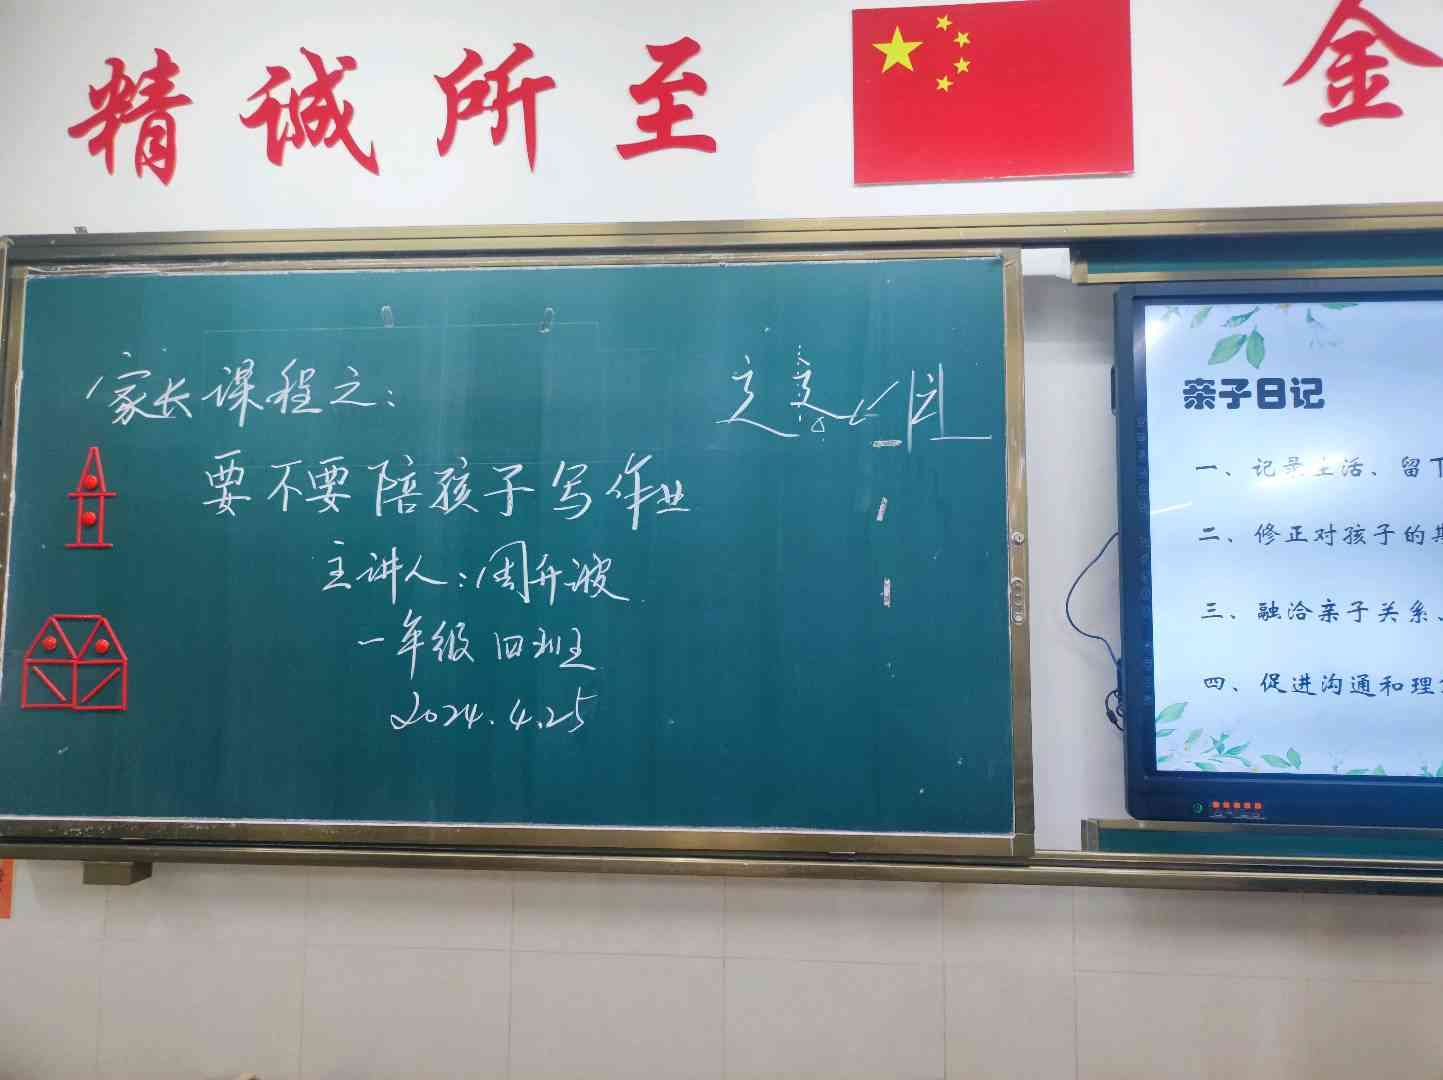 精诚所至
金
家长课程之：
要不要陪孩子写作业
主讲人：周升波
一年级 四班
2024.4.25
亲子日记
一、记录生活、留下
二、修正对孩子的
三、融洽亲子关系、
四、促进沟通和理